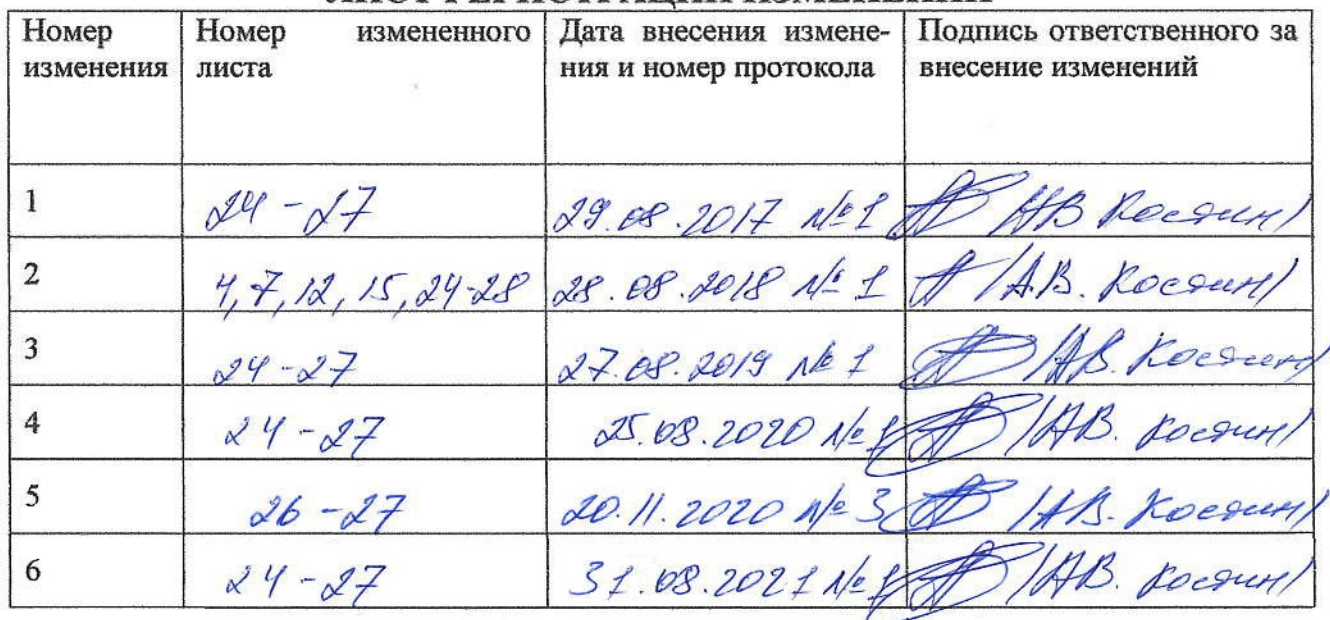 ЛИСТ РЕГИСТРАЦИИ ИЗМЕНЕНИЙ
Номер изменения | Номер измененного листа | Дата внесения измене-ния и номер протокола | Подпись ответственного за внесение изменений
1 | 24-27 | 29.08.2017 №1 | /АВ Костин/
2 | 4,7,12,15,24-28 | 28.08.2018 №1 | /А.В. Костин/
3 | 24-27 | 27.08.2019 №1 | /АВ. Костин/
4 | 24-27 | 25.08.2020 №1 | /АВ. Костин/
5 | 26-27 | 20.11.2020 №3 | /АВ. Костин/
6 | 24-27 | 31.08.2021 №1 | /АВ. Костин/